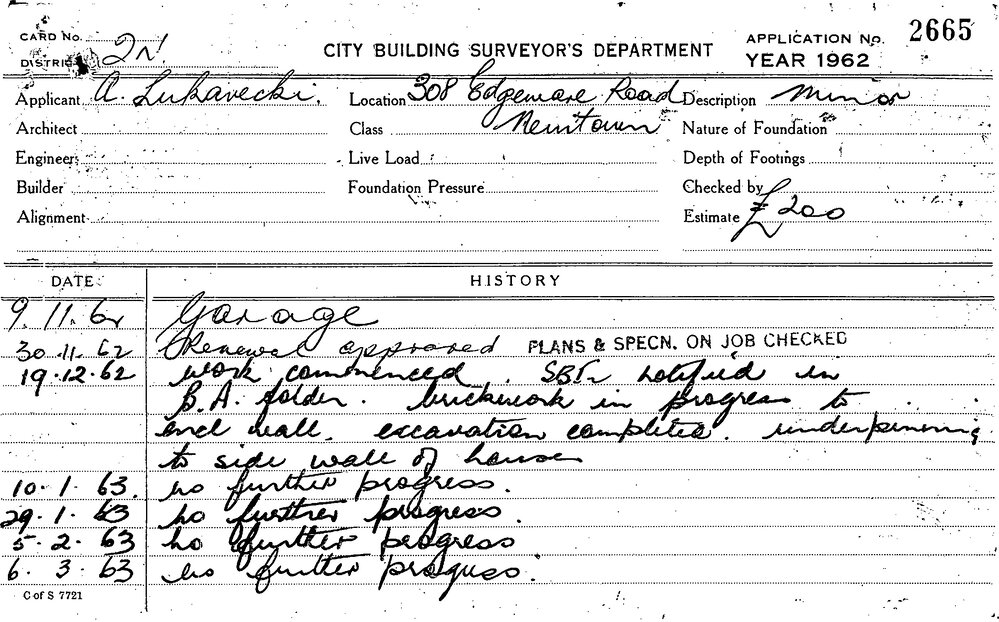 CARD No.
DISTRICT 2N
CITY BUILDING SURVEYOR'S DEPARTMENT
APPLICATION No. 2665
YEAR 1962
Applicant A. Lukavecki. Location 308 Edgeware Road Description Minor
Architect Class Newtown Nature of Foundation
Engineer Live Load Depth of Footings
Builder Foundation Pressure Checked by
Alignment Estimate £200
DATE HISTORY
9.11.62 Garage
30.11.62 Renewal approved PLANS & SPECN. ON JOB CHECKED
19.12.62 work commenced. notified in
B.A. folder. brickwork in progress to
end wall. excavation completed. underpinning
to side wall of house
10.1.63. no further progress.
29.1.63 no further progress.
5.2.63 no further progress
6.3.63 no further progress.
C of S 7721